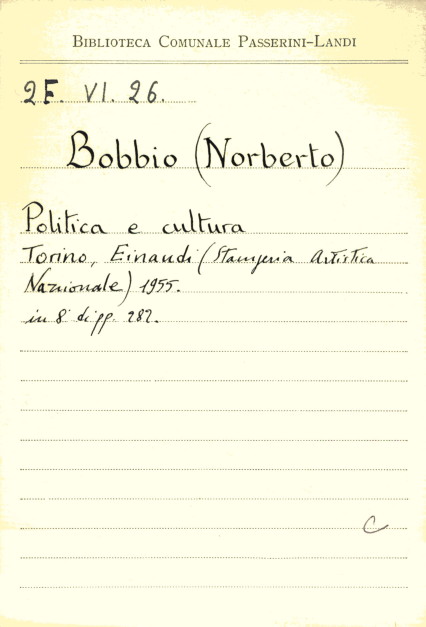 BIBLIOTECA COMUNALE PASSERINI-LANDI
2F. VI. 26.
Bobbio (Norberto)
Politica e cultura
Torino, Einaudi (Stamperia Artistica
Nazionale) 1955.
in 8° di pp. 282.
C